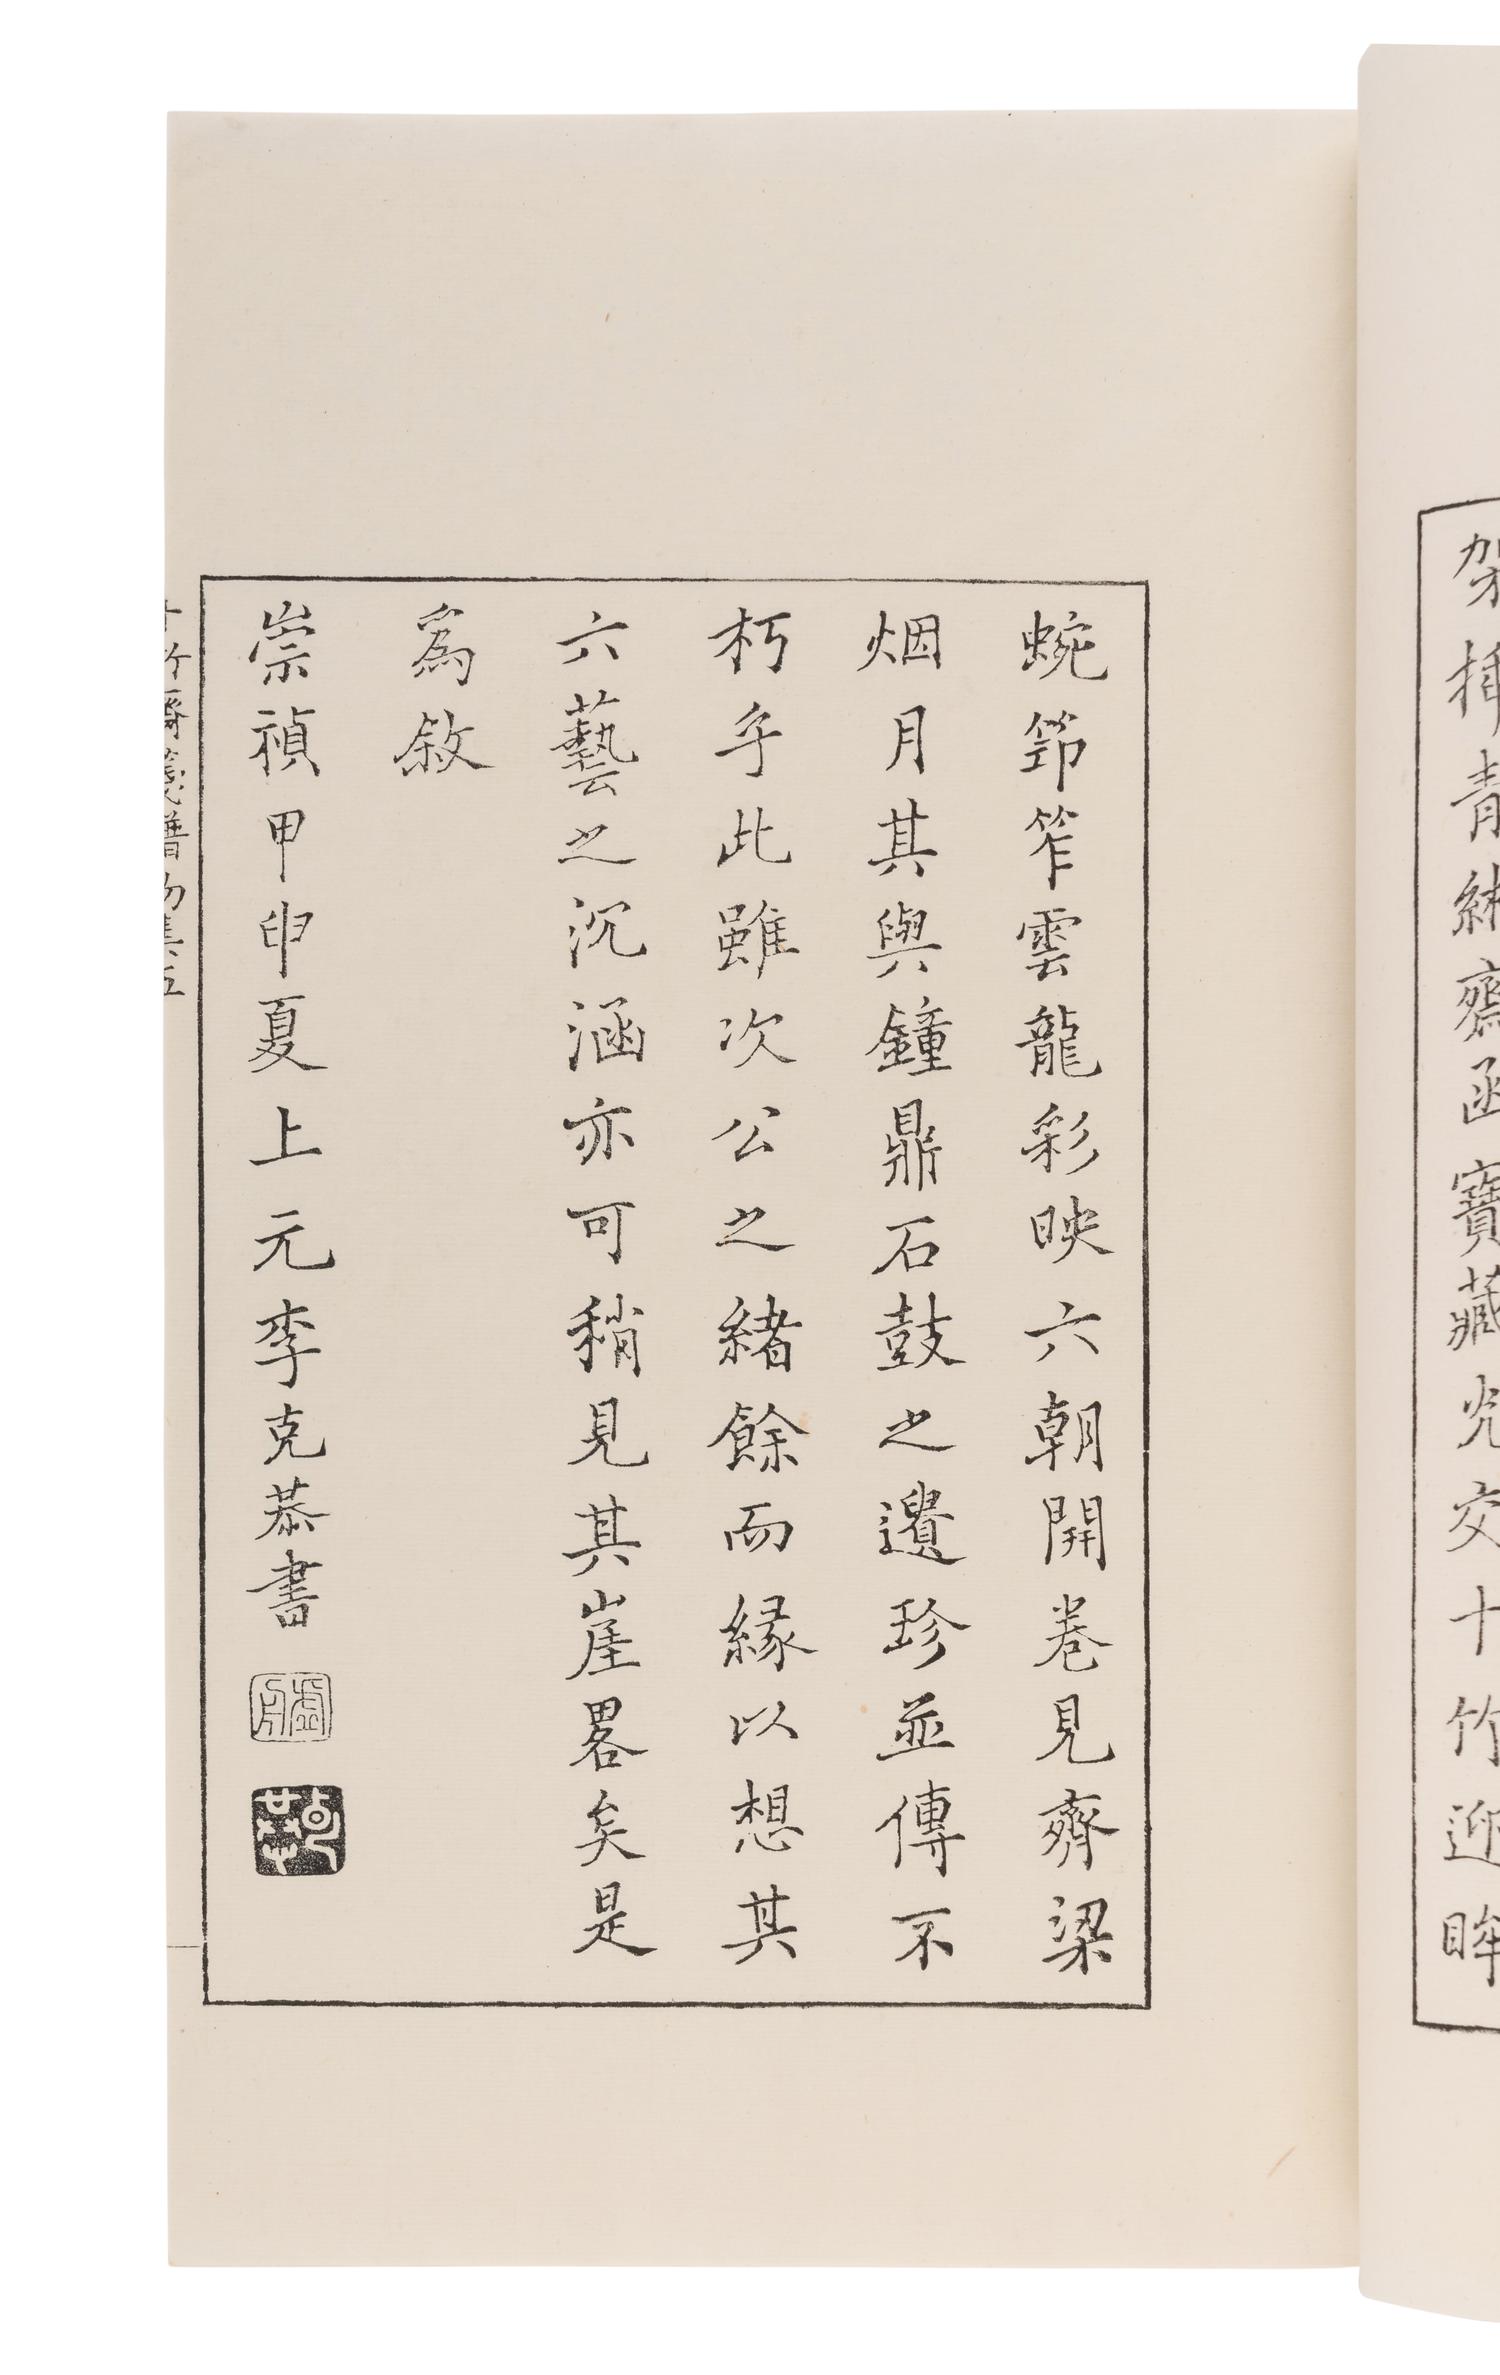 架插青緗齋函寶藏光交十竹迎眸
蜿節笮雲龍彩映六朝開卷見齊梁
烟月其與鐘鼎石鼓之遺珍並傳不
朽乎此雖次公之緒餘而緣以想其
六藝之沉涵亦可稍見其崖畧矣是
爲敘
崇禎甲申夏上元李克恭書
十竹齋箋譜初集五